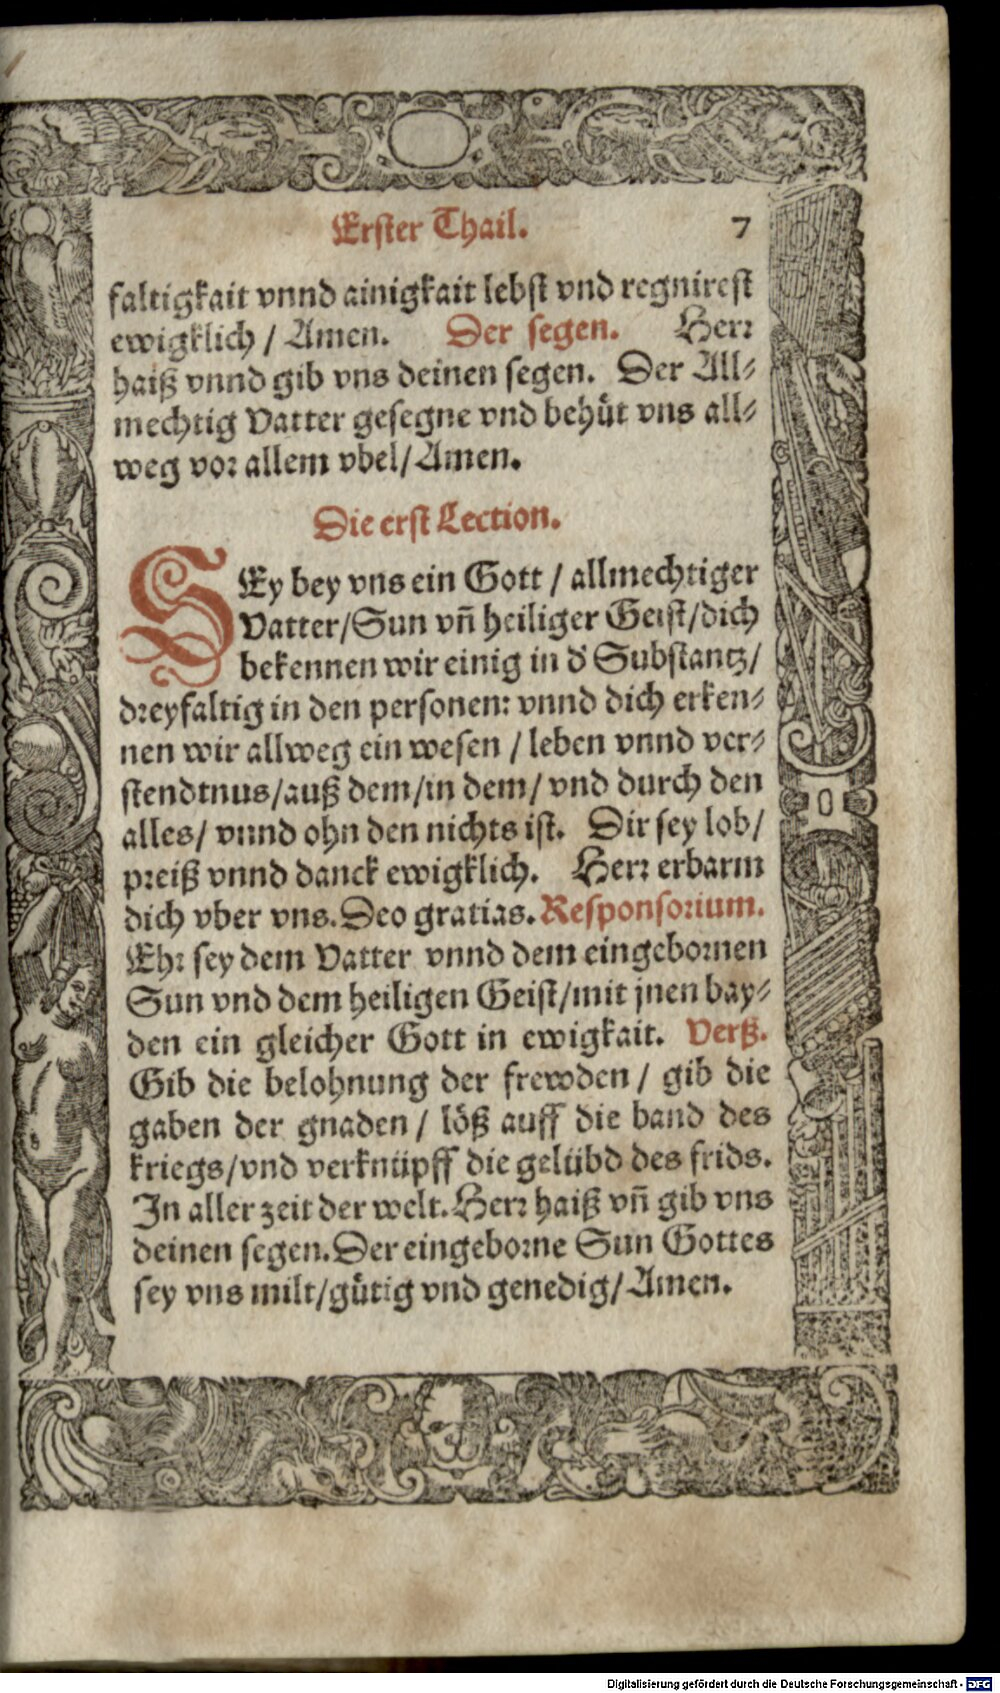 Erster Thail. 7
faltigkait vnnd ainigkait lebst vnd regnirest
ewigklich / Amen. Der segen. Herr
haiß vnnd gib vns deinen segen. Der All⸗
mechtig Vatter gesegne vnd behüt vns all⸗
weg vor allem vbel/Amen.
Die erst Lection.
SEy bey vns ein Gott / allmechtiger
Vatter/Sun vñ heiliger Geist/dich
bekennen wir einig in d' Substantz/
dreyfaltig in den personen: vnnd dich erken⸗
nen wir allweg ein wesen / leben vnnd ver⸗
stendtnus/auß dem/in dem/ vnd durch den
alles/ vnnd ohn den nichts ist. Dir sey lob/
preiß vnnd danck ewigklich. Herr erbarm
dich vber vns. Deo gratias. Responsorium.
Ehr sey dem Vatter vnnd dem eingebornen
Sun vnd dem heiligen Geist/mit jnen bay⸗
den ein gleicher Gott in ewigkait. Verß.
Gib die belohnung der frewden / gib die
gaben der gnaden / löß auff die band des
kriegs/vnd verknüpff die gelübd des frids.
In aller zeit der welt. Herr haiß vñ gib vns
deinen segen. Der eingeborne Sun Gottes
sey vns milt/gütig vnd genedig/Amen.
Digitalisierung gefördert durch die Deutsche Forschungsgemeinschaft - DFG